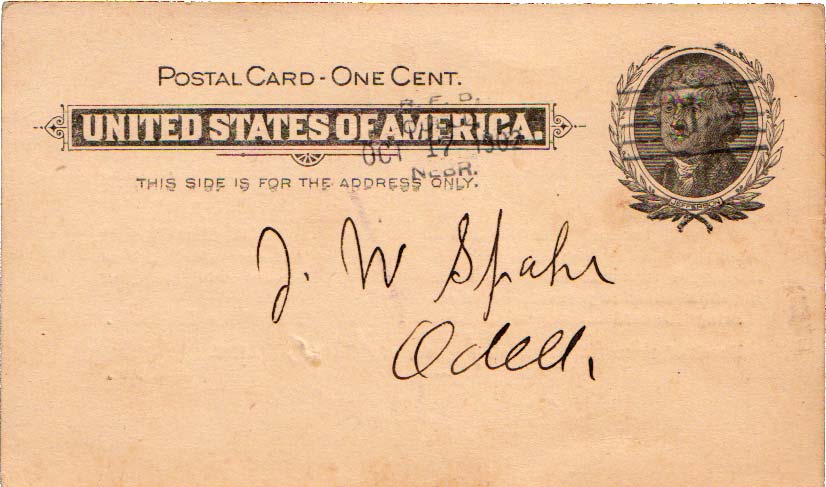 POSTAL CARD - ONE CENT.
R. F. D.
UNITED STATES OF AMERICA.
OCT 17 1902
NEBR.
THIS SIDE IS FOR THE ADDRESS ONLY.
JEFFERSON
J. W Spahr
Odell,